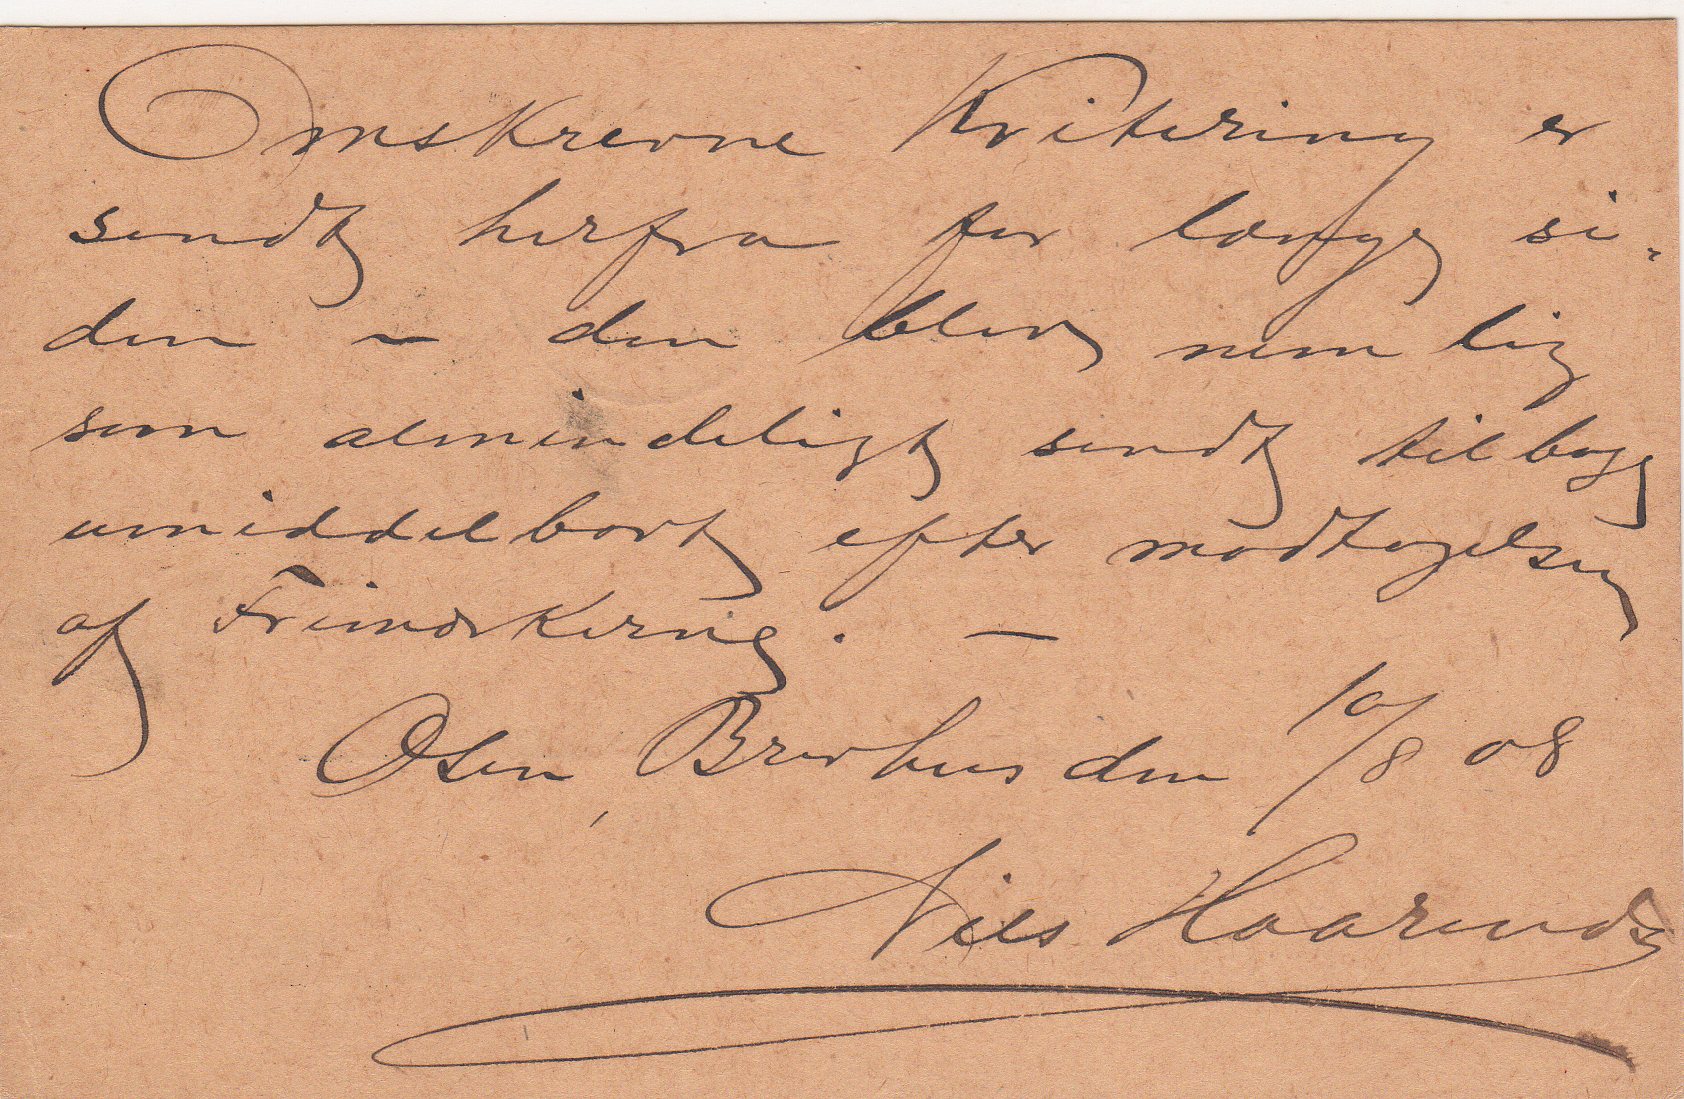 Omskrevne Kvitering er
sendt herfra for længe si-
den – den blev nemlig
som almindeligt sendt tilbage
umiddelbart efter modtagelsen
af Frimærkerne. —
Osen, Brevhus den 10/8 08
Nils Haarend